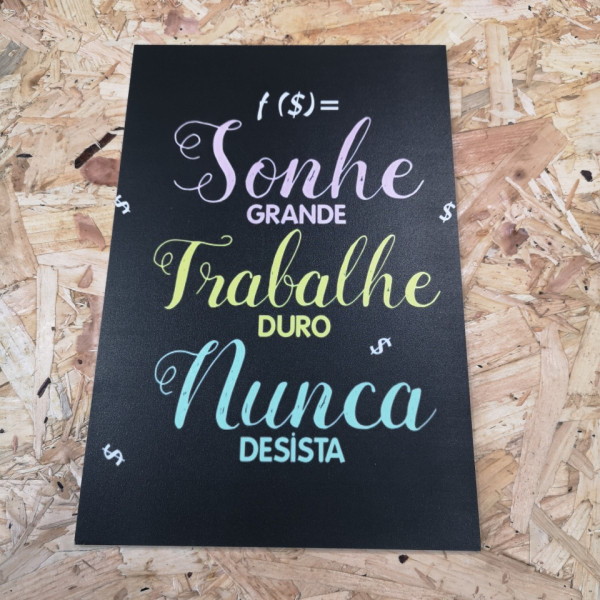 f ($) =
Sonhe
GRANDE
$
$
Trabalhe
DURO
$
Nunca
DESİSTA
$